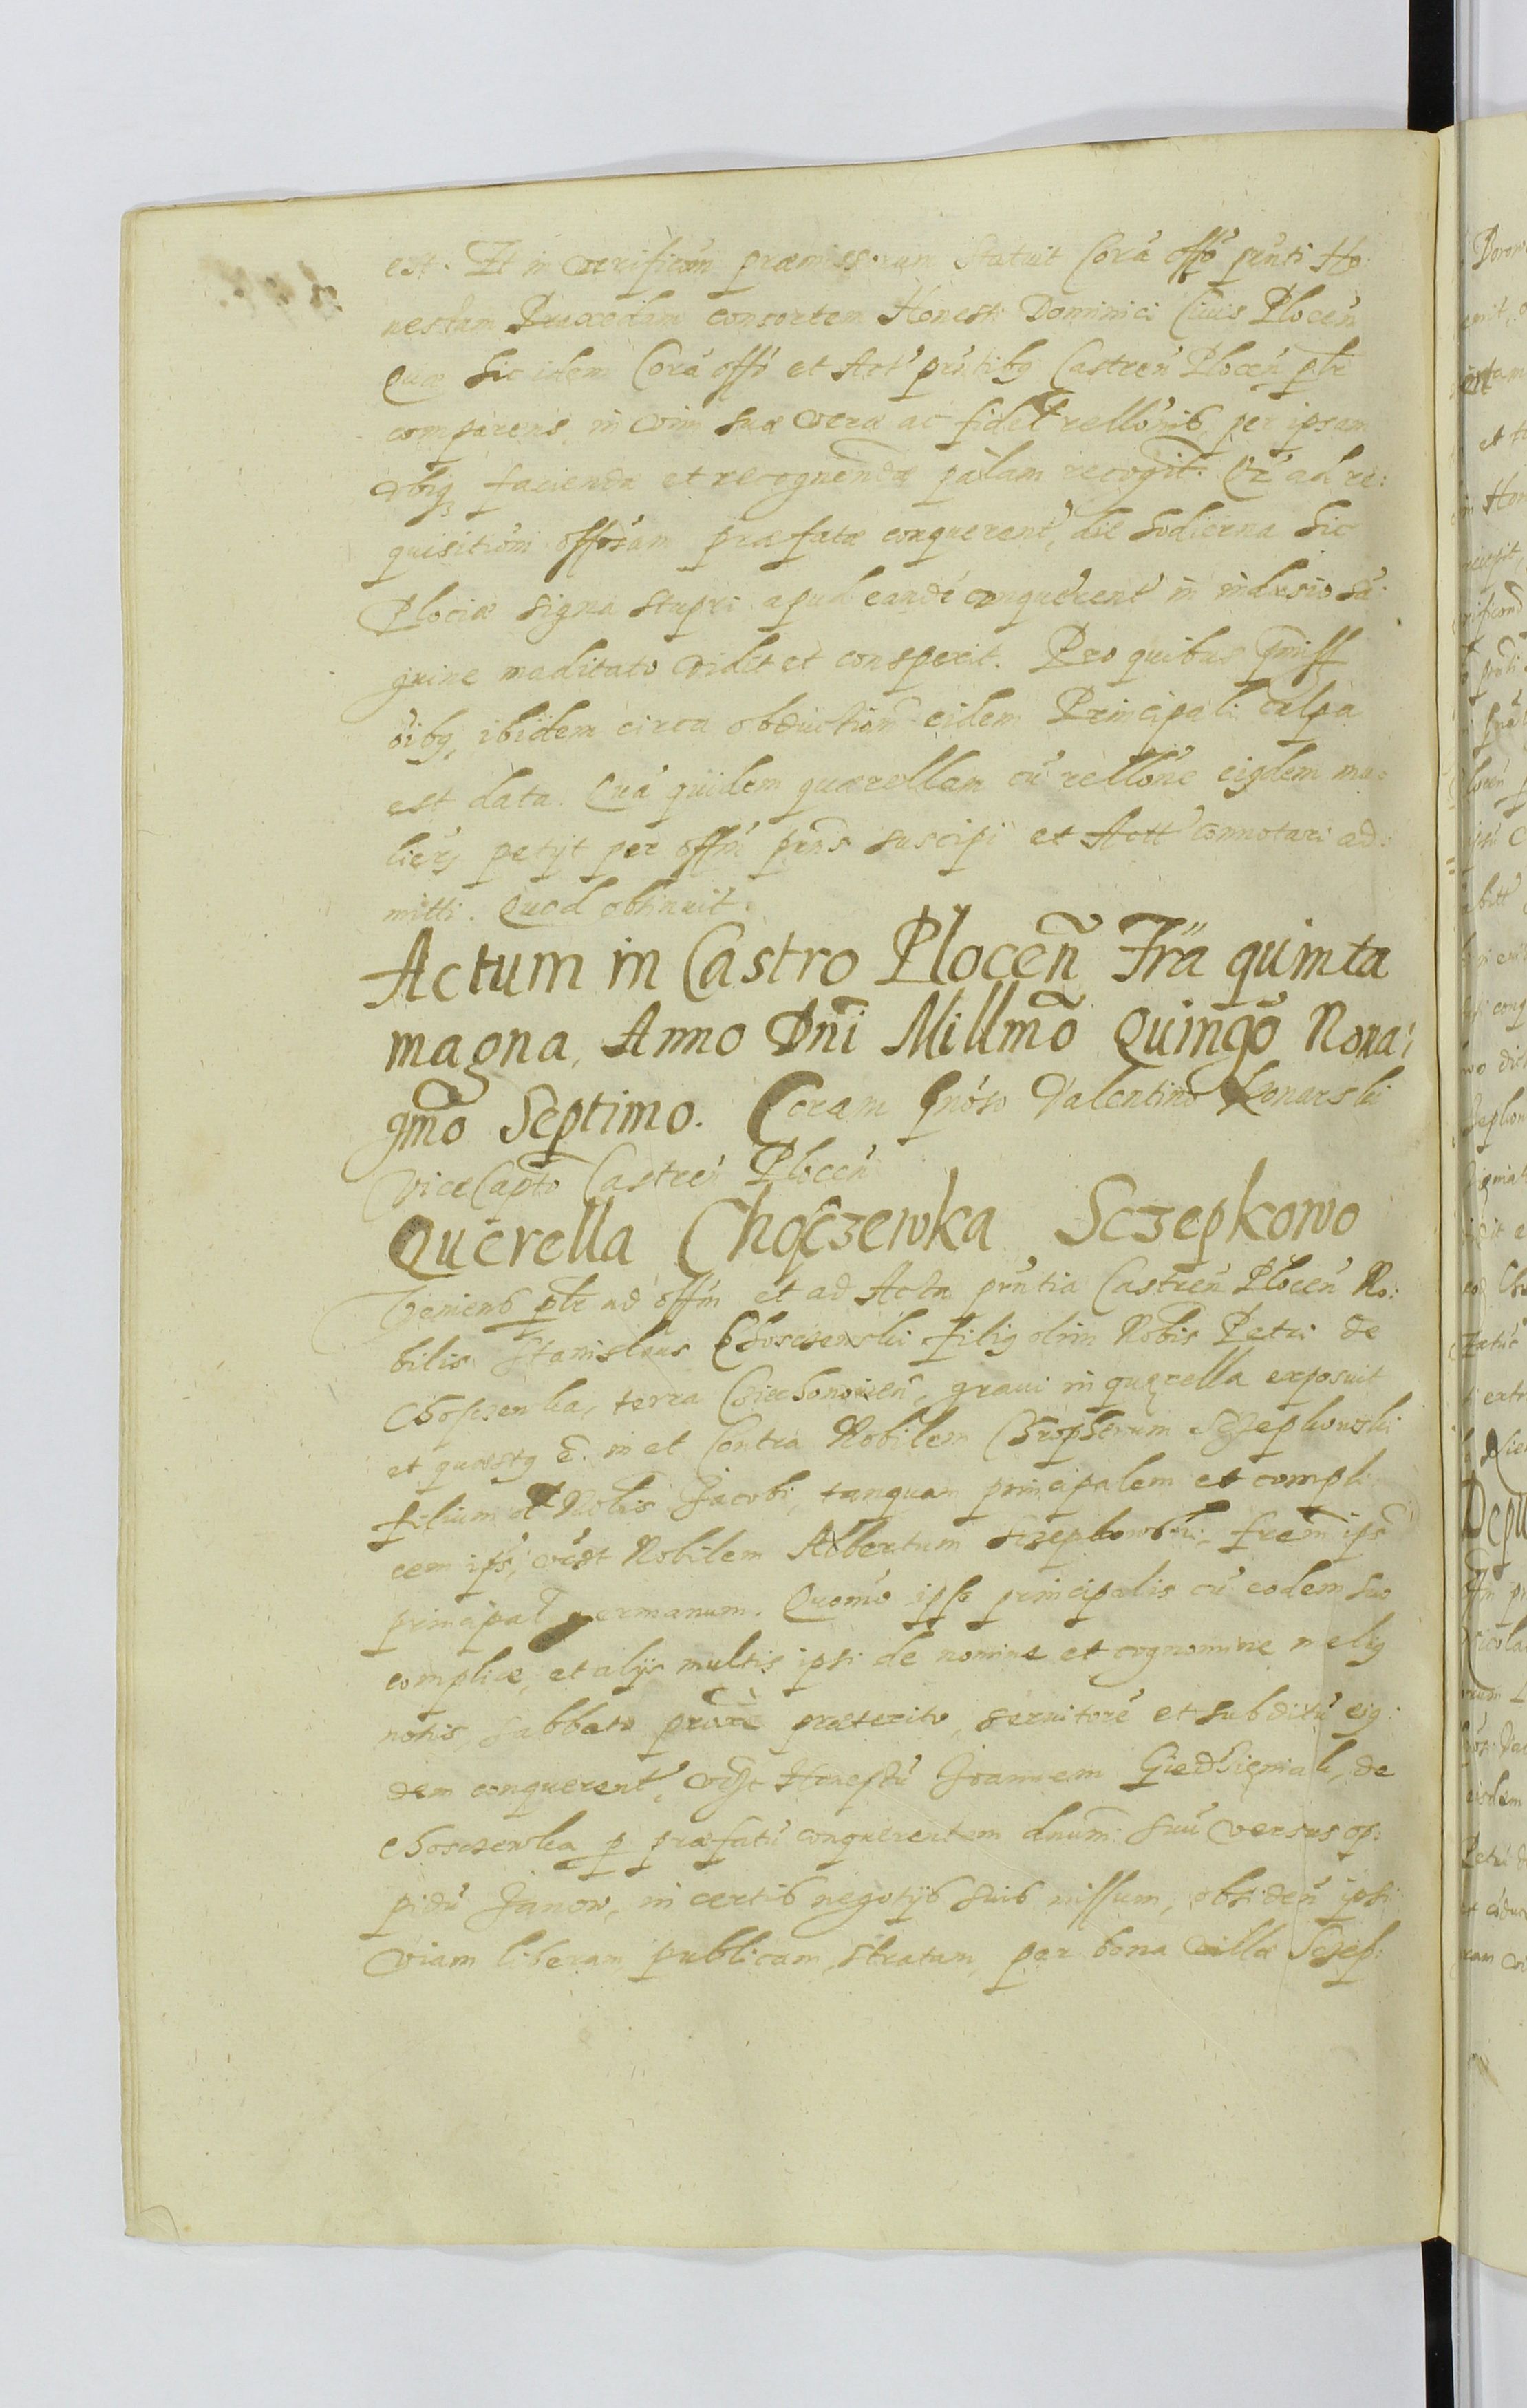 est. Et in verificaõm præmissorum statuit Corã offõ pñti Ho:
nestam Praxedim consortem Honesti Dominici Ciuis Plocen̄
Quæ hic idem Corã offõ et Act' pñtibq Castren̄ Plocen̄ pltr
comparens, in vim suæ veræ ac fidel rellõnis, per ipsam
vbiq faciendæ et recognendæ palam recogt. Qz ad re:
quisitiõm offõsam præfatæ conquerent', die hodierna hic
Plociæ signa stupri apud eandẽ conquerent' in indusio sã:
guine maditato vidit et conspexit. Pro quibus pmiss
õibq, ibidem circa obductioñ eidem Principali culpa
est data. Quã quidem quærellam cũ rellõne eiqdem mu:
lierz petyt per offm̃ pñs suscipi et Actt' connotari ad:
mitti. Quod obtinuit.
Actum in Castro Plocen̄ Fr̃a quinta
magna, Anno Dñi Millmõ Quingõ Nona:
gmõ Septimo. Coram Gnõso Valentino Konarski
ViceCaptõ Castren̄ Plocen̄
Querella Choſczewka Sczepkowo
Veniens pltr ad offm̃ et ad Acta pñtia Castren̄ Plocen̄ No:
bilis Stanislaus Chosczewski filiq olim Nobis Petri de
Choſczewka, terra Cziechonowien̄, graui in quęrella exposuit
et quæstq ẽ. in et Contra Nobilem Chrophorum Sczepkowski
filium ol Nobis Jacobi, tanquam principalem et compli
cem ips', vꝫt Nobilem Adbertum Sczepkowski, frem̃ ips'
principal germanum. Quomõ ipse principalis cũ eodem suo
complice, et alijs multis ipsi de nomine et cognomine meliq
notis, sabbato prõxe præterito, seruitorẽ et subditũ eiq:
dem conquerent', vꝫt Honestũ Joannem
choſczewka p præfatũ conquerentem dnum̃ suũ versus op:
pidũ Janow, in certis negotijs suis missum, obsiden̄ ipsi
viam liberam publicam, stratam, per bona villæ Sczep: